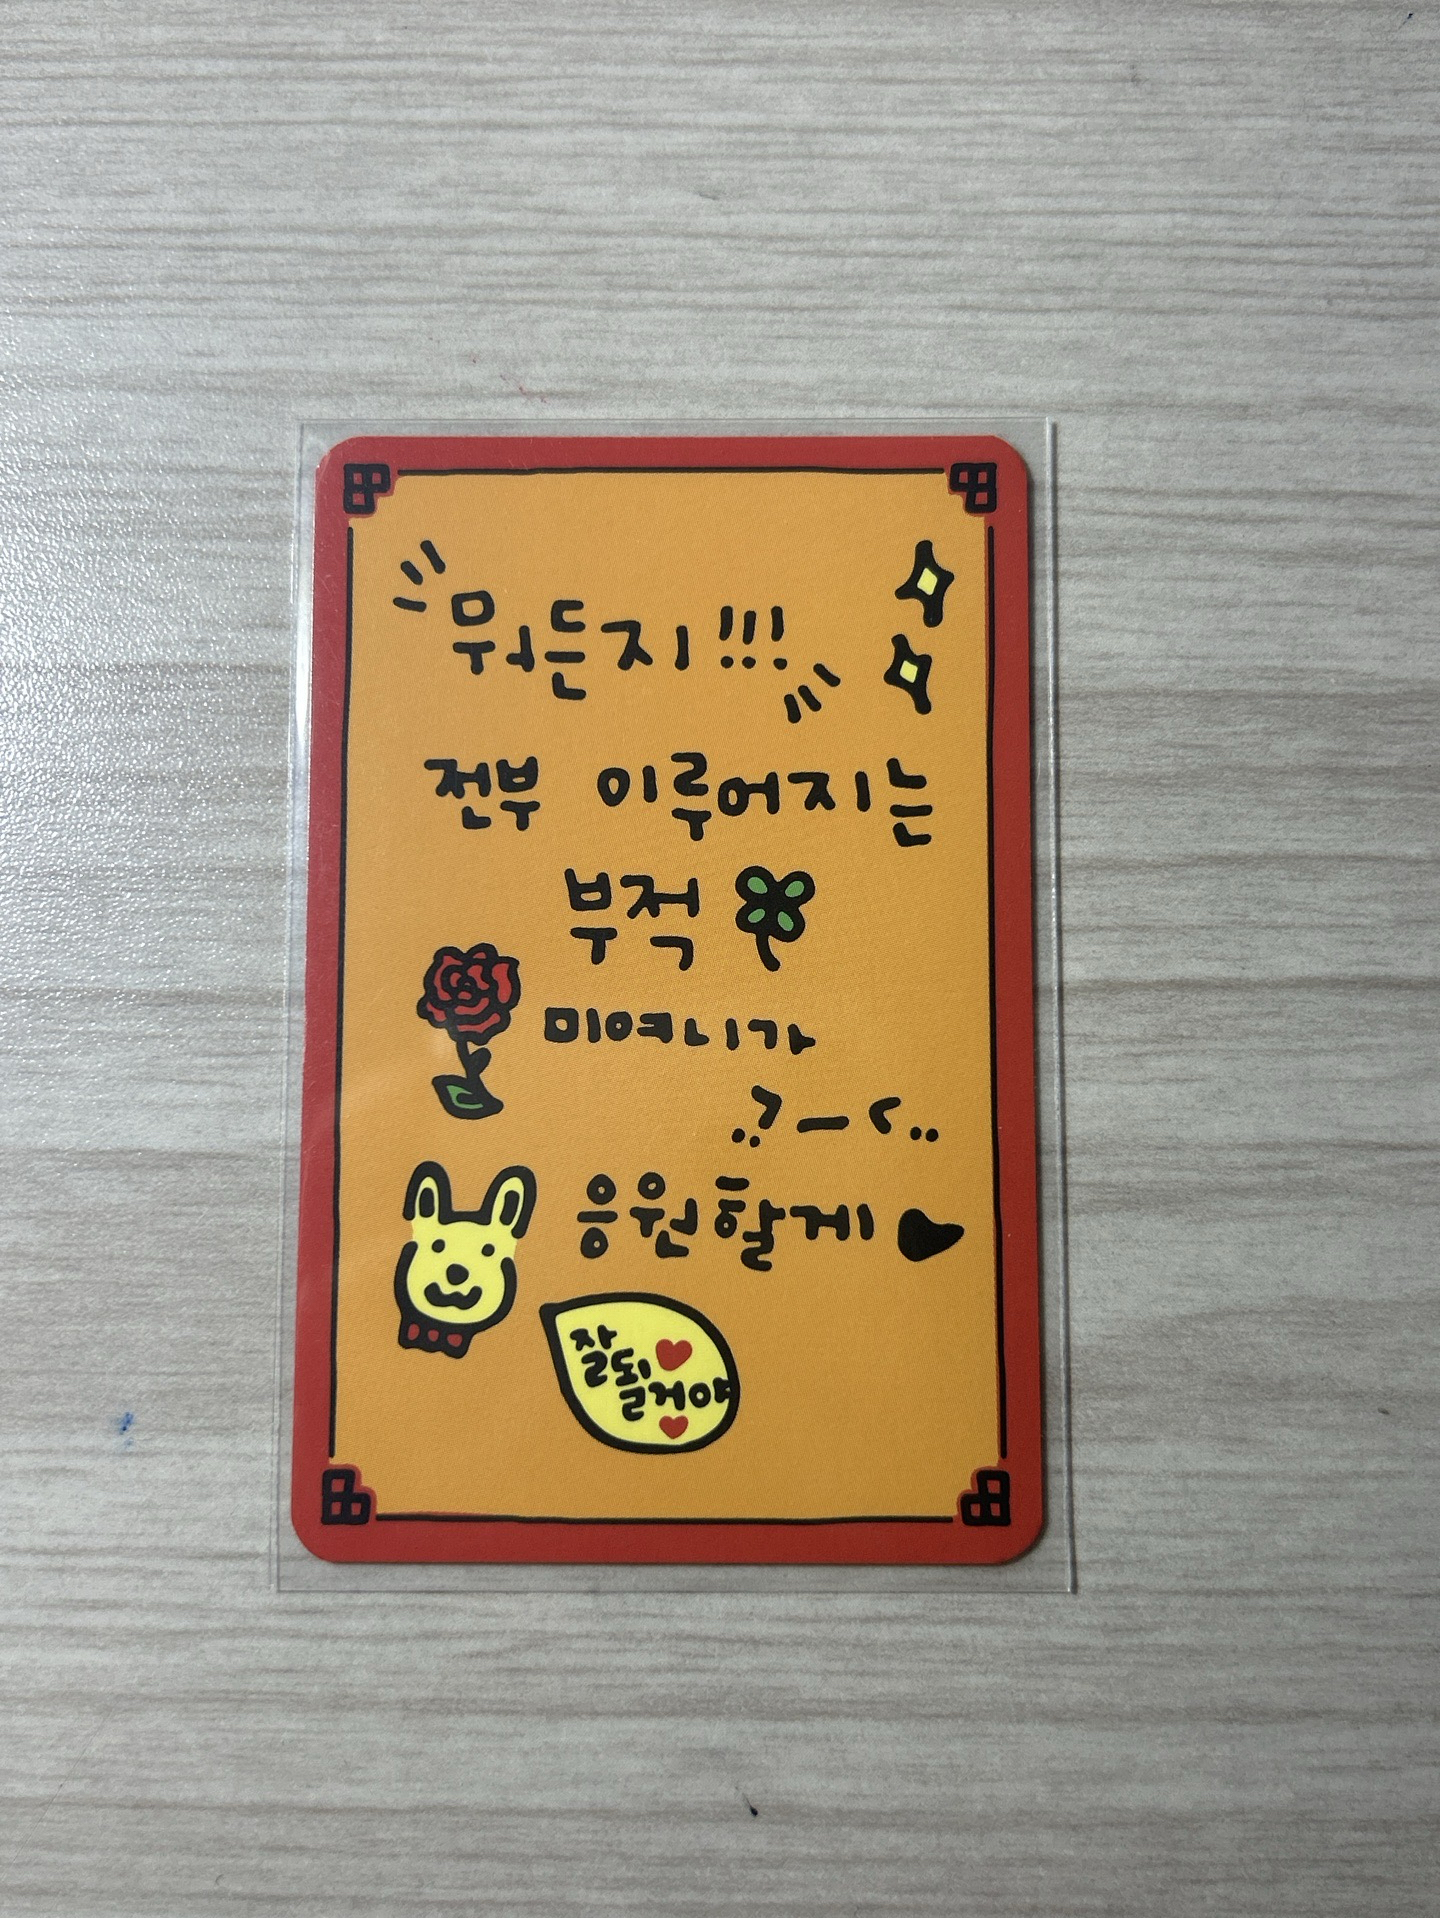 뭐든지!!!
전부 이루어지는
부적
미여니가
응원할게
잘될거야